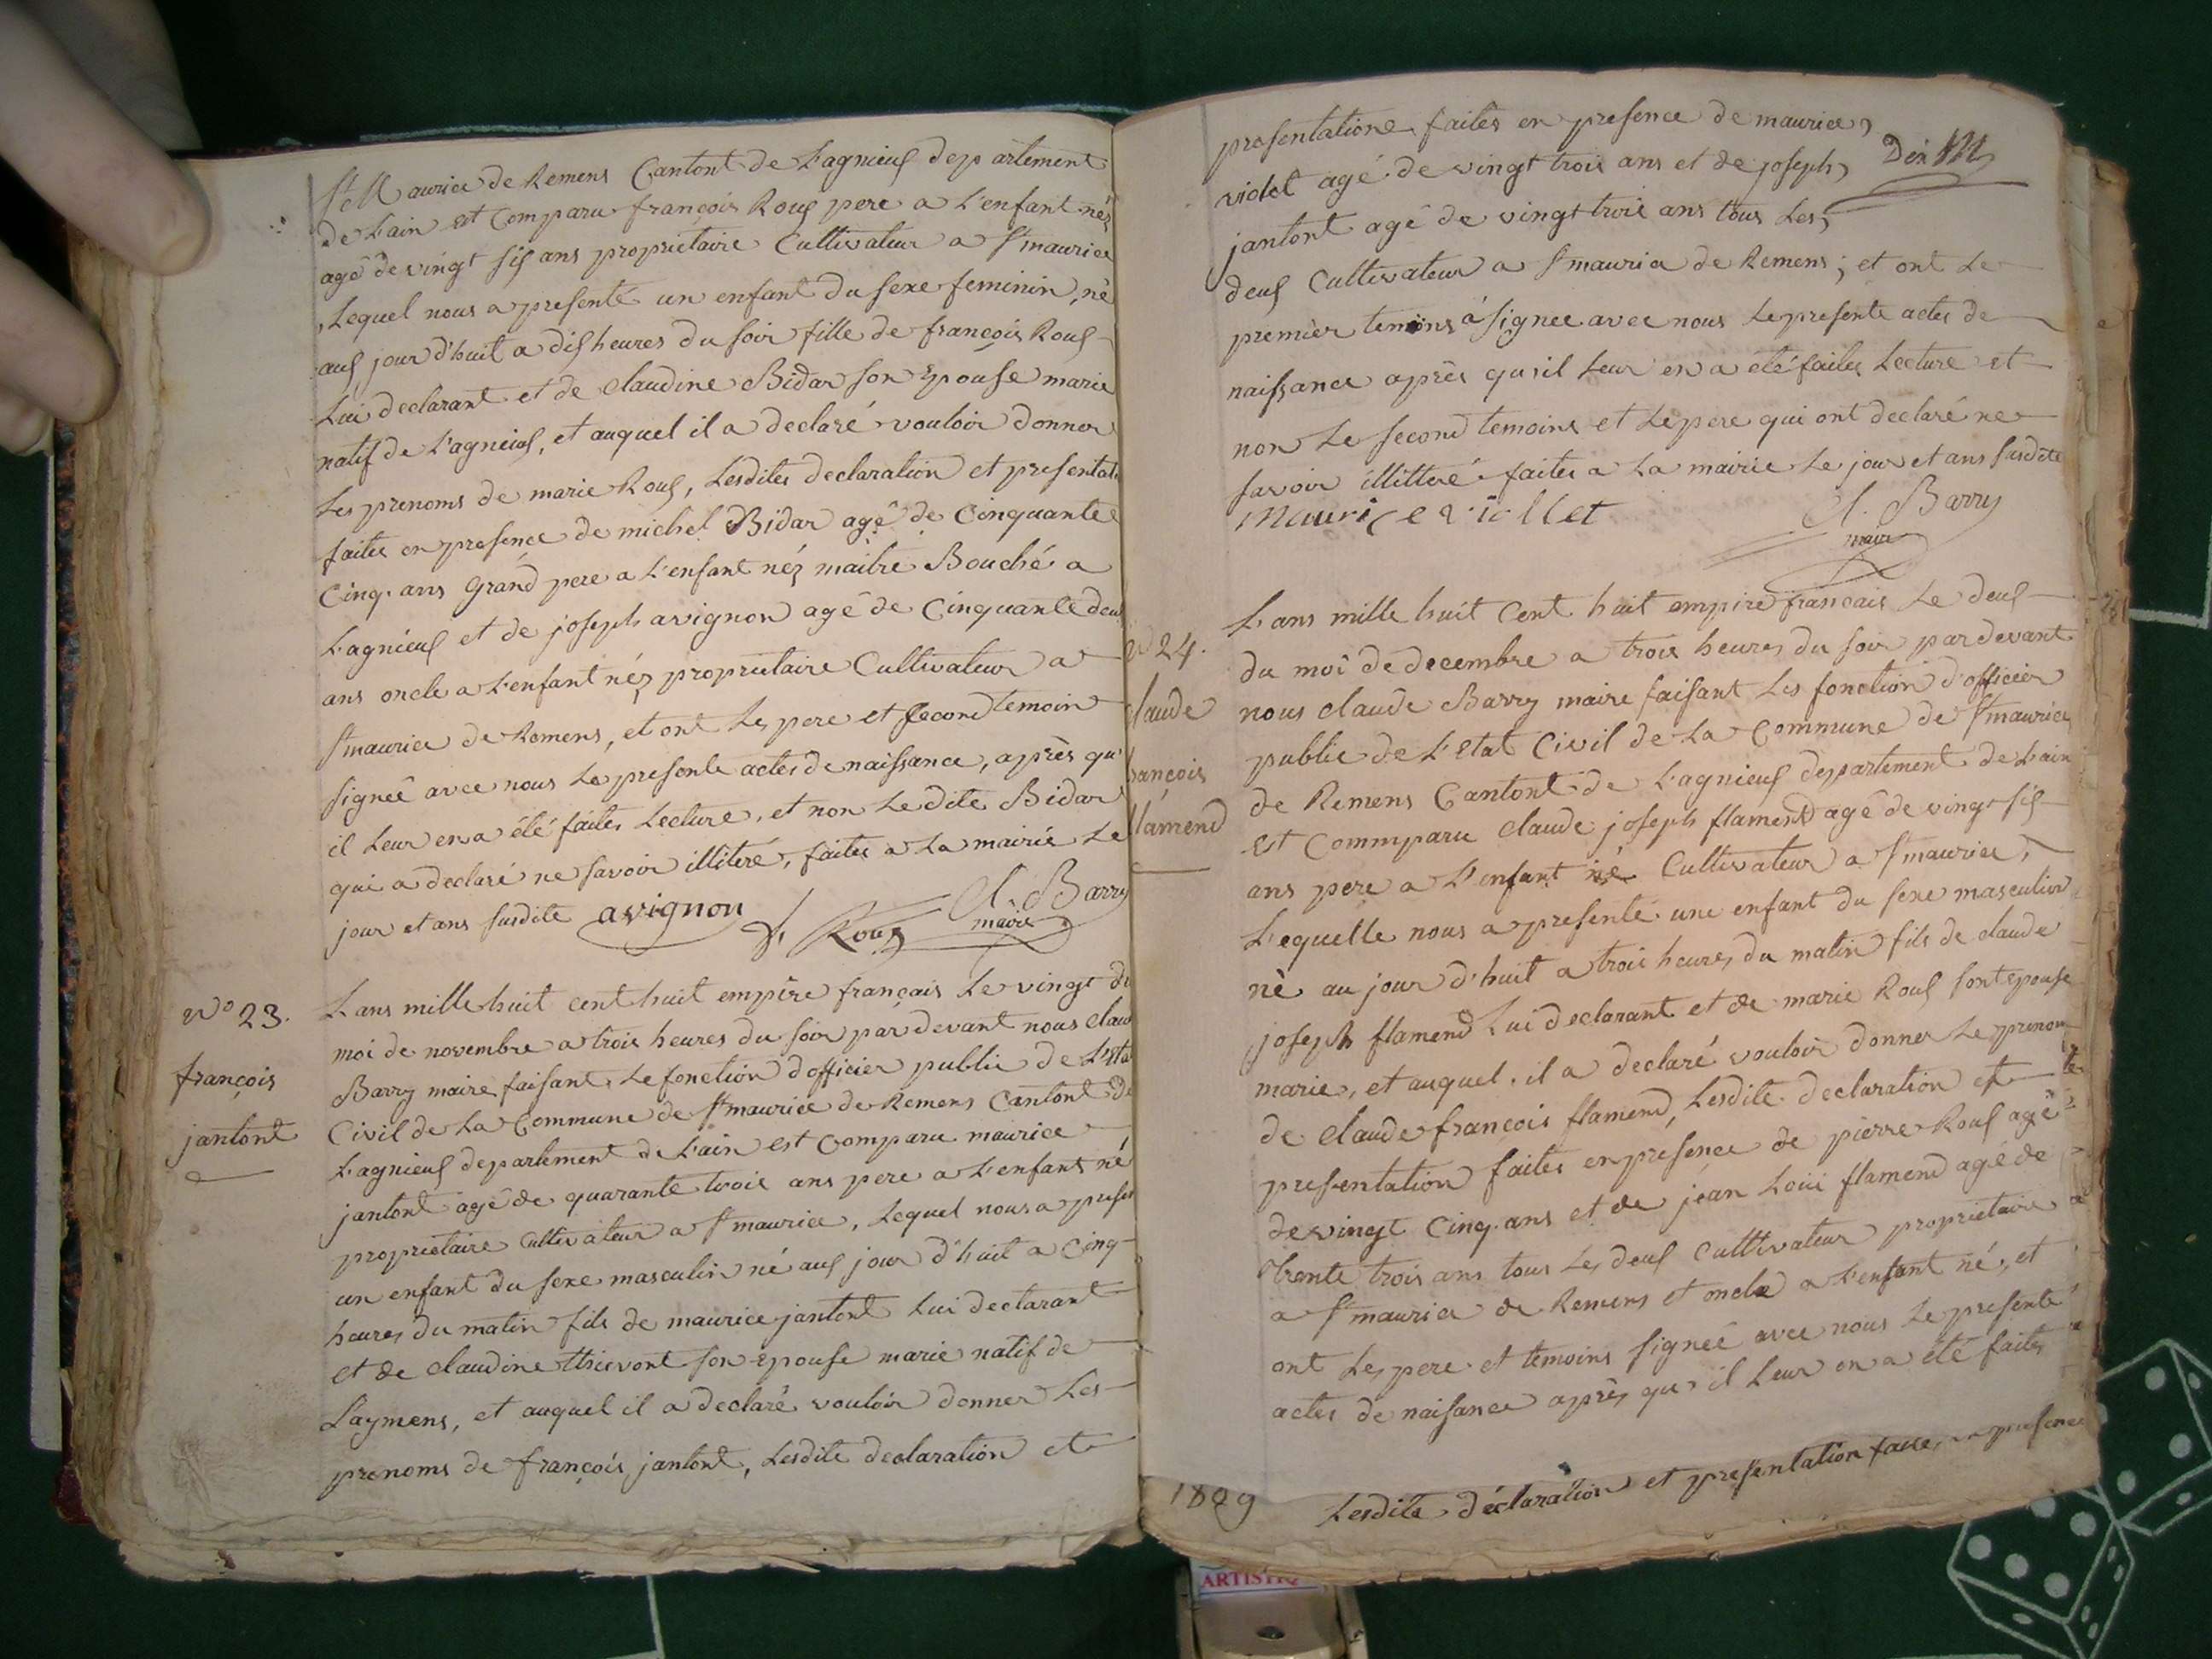 St Maurice de Remens Cantont de Lagnieuf departement
de Lain est Comparu françois Rouf pere a L'enfant néz
agé de vingt sif ans proprietaire Cultivateur a St maurice
, Lequel nous a presenté un enfant du sexe feminin, né
auf jour d'huit a dif heures du soir fille de françois Rouf
Lui declarant et de claudine Bidar son Epouse marie
natif de L'agnieuf, et auquel il a declaré vouloir donner
Les prenoms de marie Rouf, Lesdites declaration et presentati
faites en presence de michel Bidar agé de Cinquante
Cinq. ans Grand pere a L'enfant néz maitre Bouché a
L'agnieuf et de joseph avignon agé de Cinquante deuf
ans oncle a L'enfant néz proprietaire Cultivateur a
St maurice de Remens, et ont Le pere et second temoin
signeé avec nous Le presente actes de naissance, après qu'
il Leur en a été faites Lecture, et non Le dite Bidar
qui a declaré ne savoir illiteré, faites a La mairie Le
jour et ans susdite avignon f. Rouz Cl. Barry
maire
N° 23.
françois
jantont
L ans mille huit cent huit empire français Le vingt du
moi de novembre a trois heures du soir par devant nous clau
Barry maire faisant Le fonction d'officier public de L'Eta
Civil de La Commune de St maurice de Remens Cantont de
L'agnieuf departement de Lain est Comparu maurice
jantont agé de quarante trois ans pere a L'enfant né
proprietaire Cultivateur a St maurice, Lequel nous a presen
un enfant du sexe masculin né auf jour d'huit a Cinq
heures du matin fils de maurice jantont Lui declarant
et de claudine thievont son epouse marie natif de
Laymens, et auquel il a declaré vouloir donner Les
prenoms de françois jantont, Lesdite declaration et
presentatione faites en presence de maurice,
violet agé de vingt trois ans et de joseph,
jantont agé de vingt trois ans tous Les,
deuf Cultivateur a St maurice de Remens; et ont Le
premier temoins a signee avec nous Le presente actes de
naissance après qu'il Leur en a eté faites Lecture et
non Le second temoins et Le pere qui ont declaré ne
savoir illitteré faites a La mairie Le jour et ans susdite
mauri ce viollet Cl. Barry
maire
N° 24.
claude
françois
flamend
L ans mille huit Cent huit empire francais Le deuf
du moi de decembre a trois heures du soir par devant
nous claude Barry maire faisant Les fonction d'officier
public de L'Etat Civil de La Commune de St maurice
de Remens Cantont de L'agnieuf departement de Lain
est Commparu claude joseph flamend agé de vingt sif
ans pere a L'enfant né Cultivateur a St maurice,
L'equelle nous a presenté une enfant du sexe masculin
nè au jour d'huit a trois heures du matin fils de claude
joseph flamend Lui declarant et de marie Rouf sont epouse
marie, et auquel. il a declaré vouloir donner Le prenom
de claude françois flamend, Lesdite declaration et
presentation faites en presence de pierre Rouf agé
de vingt Cinq. ans et de jean Loui flamend agé de
trente trois ans tous Les deuf Cultivateur proprietaire
a St maurice de Remens et oncle a L'enfant né, et
ont Les pere et temoins signeé avec nous Le presente
actes de naisance après qu'il Leur en a été faites
1809 Lesdite déclaration et presentation faite, en presence
ARTISTI